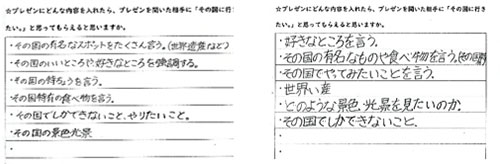 ☆プレゼンにどんな内容を入れたら、プレゼンを聞いた相手に「その国に行き
たい。」と思ってもらえると思いますか。
・その国の有名なスポットをたくさん言う。(世界遺産など)
・その国のいいところや好きなところを強調する。
・その国の特ちょうを言う。
・その国特有の食べ物を言う。
・その国でしかできないこと、やりたいこと。
・その国の景色光景
☆プレゼンにどんな内容を入れたら、プレゼンを聞いた相手に「その国に行き
たい。」と思ってもらえると思いますか。
・好きなところを言う。
・その国の有名なものや食べ物を言う。
・その国でやってみたいことを言う。
・世界い産
・どのような景色、光景を見たいのか。
・その国でしかできないこと。